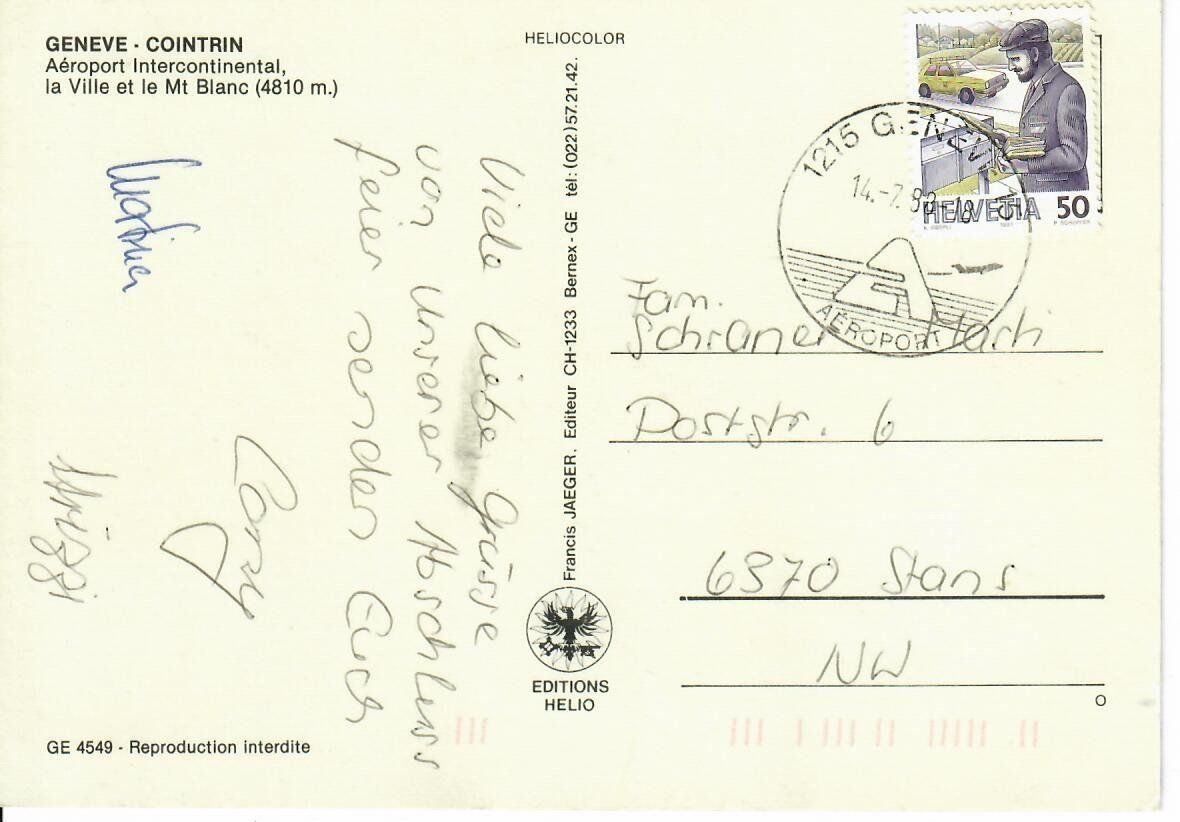 GENEVE - COINTRIN
Aéroport Intercontinental,
la Ville et le Mt Blanc (4810 m.)
HELIOCOLOR
Viele liebe Grüsse
von unserer Abschluss
feier senden Euch
Conny
Francis JAEGER. Editeur CH-1233 Bernex - GE tél: (022) 57.21.42.
EDITIONS
HELIO
GE 4549 - Reproduction interdite
HELVETIA 50
1215 GENEVE
AÉROPORT
Fam.
Schraner
Poststr. 6
6370 Stans
NW